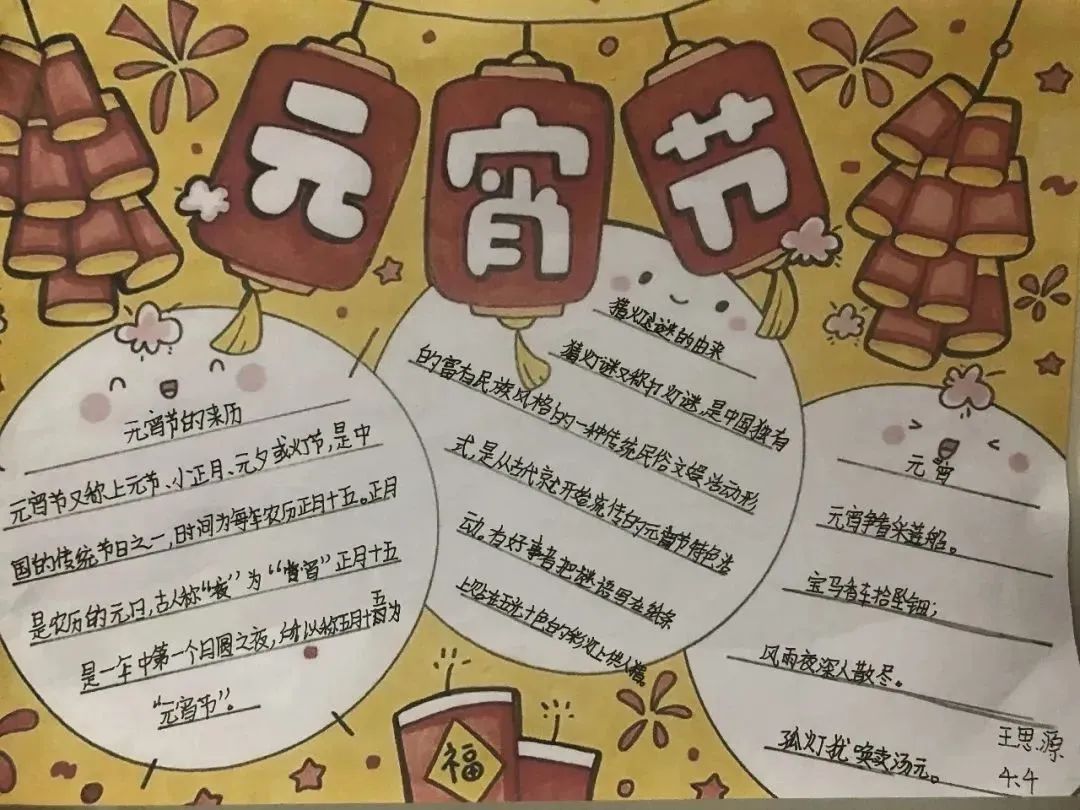 元宵节
元宵节的来历
元宵节又称上元节、小正月、元夕或灯节，是中
国的传统节日之一，时间为每年农历正月十五。正月
是农历的元月，古人称“夜”为“宵”正月十五
是一年中第一个月圆之夜，所以称正月十五为
“元宵节”。
猜灯谜的由来
猜灯谜又称打灯谜，是中国独有
的富有民族风格的一种传统民俗文娱活动形
式，是从古代就开始流传的元宵节特色活
动。有好事者把谜语写在纸条
上贴在五光十色的彩灯上供人猜。
元宵
元宵争看采莲船。
宝马香车拾坠钿；
风雨夜深人散尽。
孤灯犹唤卖汤元。
王思源
4.4
福